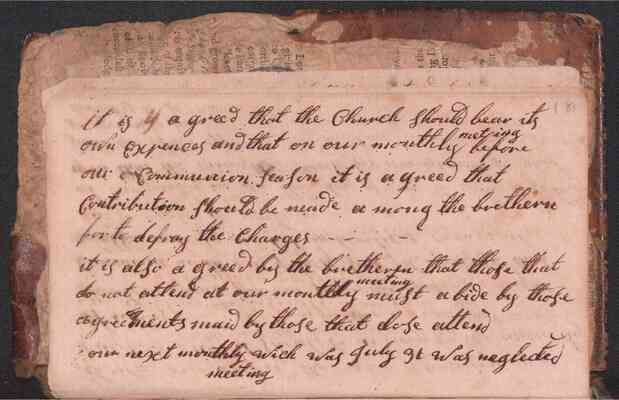 it is a greed that the Church should bear its
own expences and that on our monthly meeting before
our Communion season it is a greed that
Contribution should be made a mong the brethern
for to defray the Charges
it is also a greed by the bretheren that those that
do not attend at our monthly meeting must abide by those
agreements maid by those that dose attend
our next monthly meeting wich was July was neglected